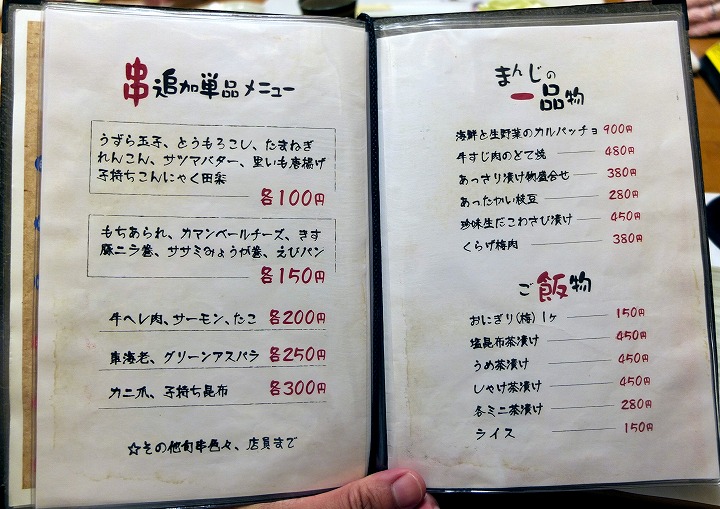 串追加単品メニュー
うずら玉子、とうもろこし、たまねぎ
れんこん、サツマバター、里いも唐揚げ
子持ちこんにゃく田楽
各100円
もちあられ、カマンベールチーズ、きす
豚ニラ巻、ササミみょうが巻、えびパン
各150円
牛ヘレ肉、サーモン、たこ 各200円
車海老、グリーンアスパラ 各250円
カニ爪、子持ち昆布 各300円
☆その他旬串色々、店員まで
まんじの
一品物
海鮮と生野菜のカルパッチョ 900円
牛すじ肉のどて焼 480円
あっさり漬け物盛合せ 380円
あったかい枝豆 280円
珍味生だこわさび漬け 450円
くらげ梅肉 380円
ご飯物
おにぎり(梅)1ヶ 150円
塩昆布茶漬け 450円
うめ茶漬け 450円
しゃけ茶漬け 450円
各ミニ茶漬け 280円
ライス 150円